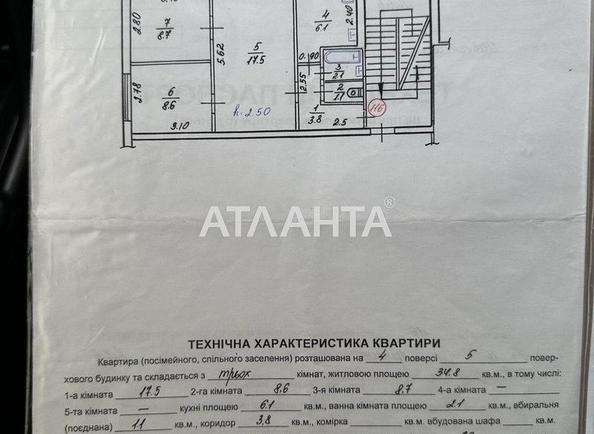 7
8.7
2.80
5.62
5
17.5
4
6.1
2.40
0.90
3
2.1
2
1.1
2.55
2.78
6
8.6
1
3.8
2.5
116
3.10
h. 2.50
АТЛАНТА®
ТЕХНІЧНА ХАРАКТЕРИСТИКА КВАРТИРИ
Квартира (посімейного, спільного заселення) розташована на 4 поверсі 5 повер-
хового будинку та складається з трьох кімнат, житловою площею 34.8 кв.м., в тому числі:
1-а кімната 17.5 2-га кімната 8.6 3-я кімната 8.7 4-а кімната —
5-та кімната — кухні площею 6.1 кв.м., ванна кімната площею 2.1 кв.м., вбиральня
(поєднана) 1.1 кв.м., коридор 3.8 кв.м., комірка — кв.м. вбудована шафа — кв.м.